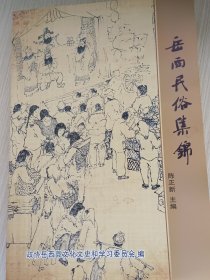 岳西民俗集锦
陈正新 主编
政协岳西县文化文史和学习委员会 编